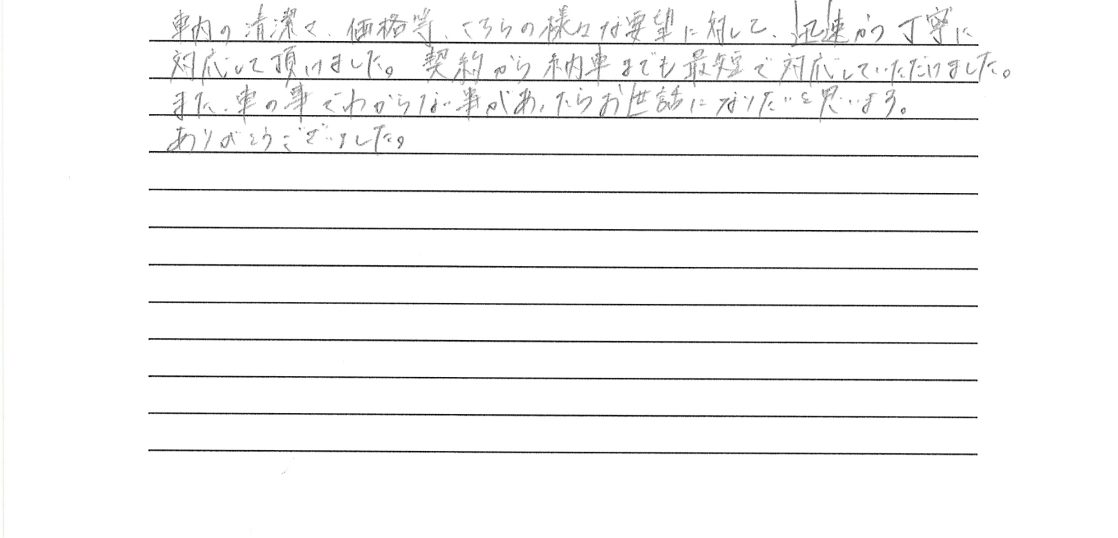 車内の清潔さ、価格等、こちらの様々な要望に対して、迅速かつ丁寧に
対応して頂けました。契約から納車までも最短で対応していただけました。
また、車の事でわからない事があったらお世話になりたいと思います。
ありがとうございました。